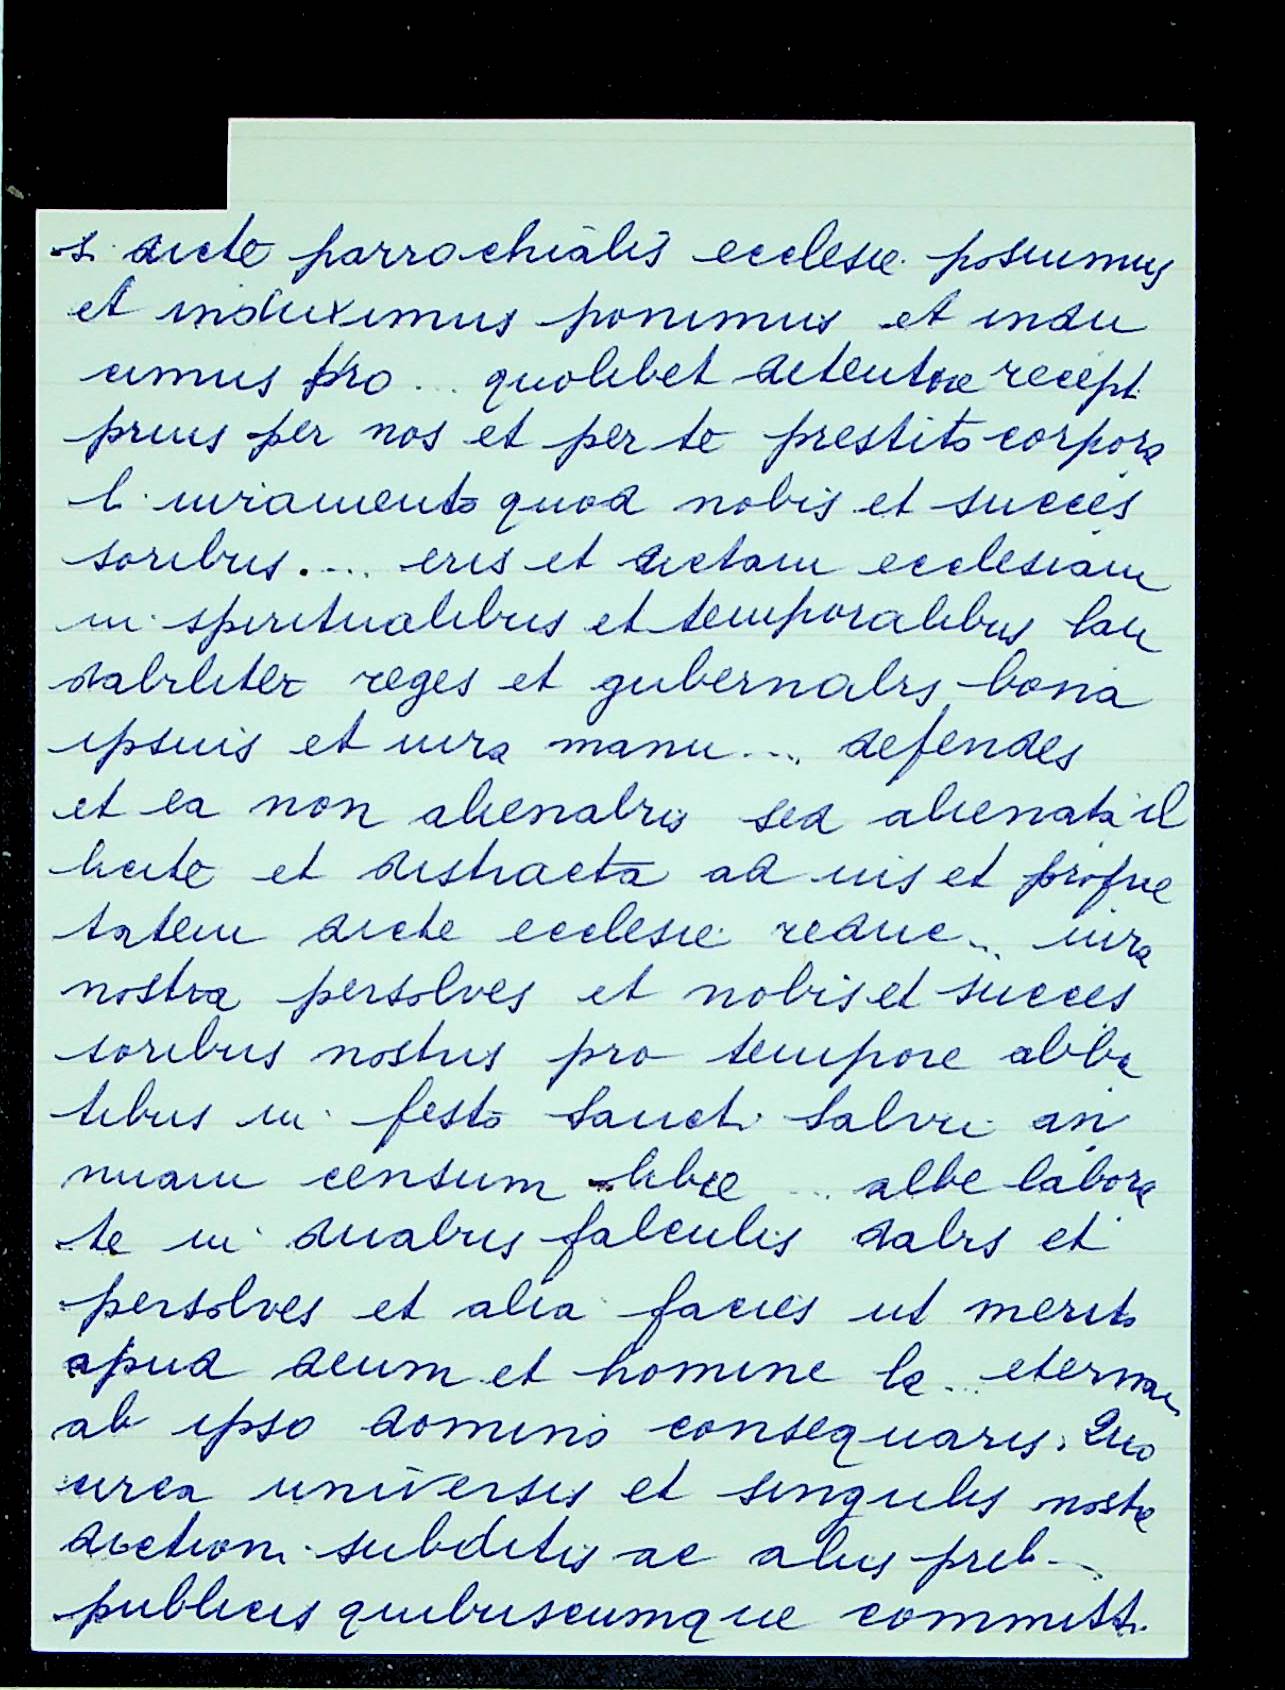 s. dicte parrochialis ecclesie posuimus
et induximus ponimus et indu
cimus pro ... quolibet detentore recept.
prius per nos et per te prestito corpora
li iuramento quod nobis et succes
soribus .... eris et dictam ecclesiam
in spiritualibus et temporalibus lau
dabiliter reges et gubernabis bona
ipsius et iura manu .... defendes
et ea non alienabis sed alienata il
licite et distracta ad ius et proprie
tatem dicte ecclesie reduc... iura
nostra persolves et nobis et succes
soribus nostris pro tempore abba
tibus in festo Sancti Salvii an
nuam censum libre ... albe labora
te in duabus falculis dabis et
persolves et alia facies ut merito
apud deum et homine le... eternam
ab ipso domino consequaris. Quo
circa universis et singulis nostre
dictioni subditis ac aliis preb...
publicis quibuscumque committi.